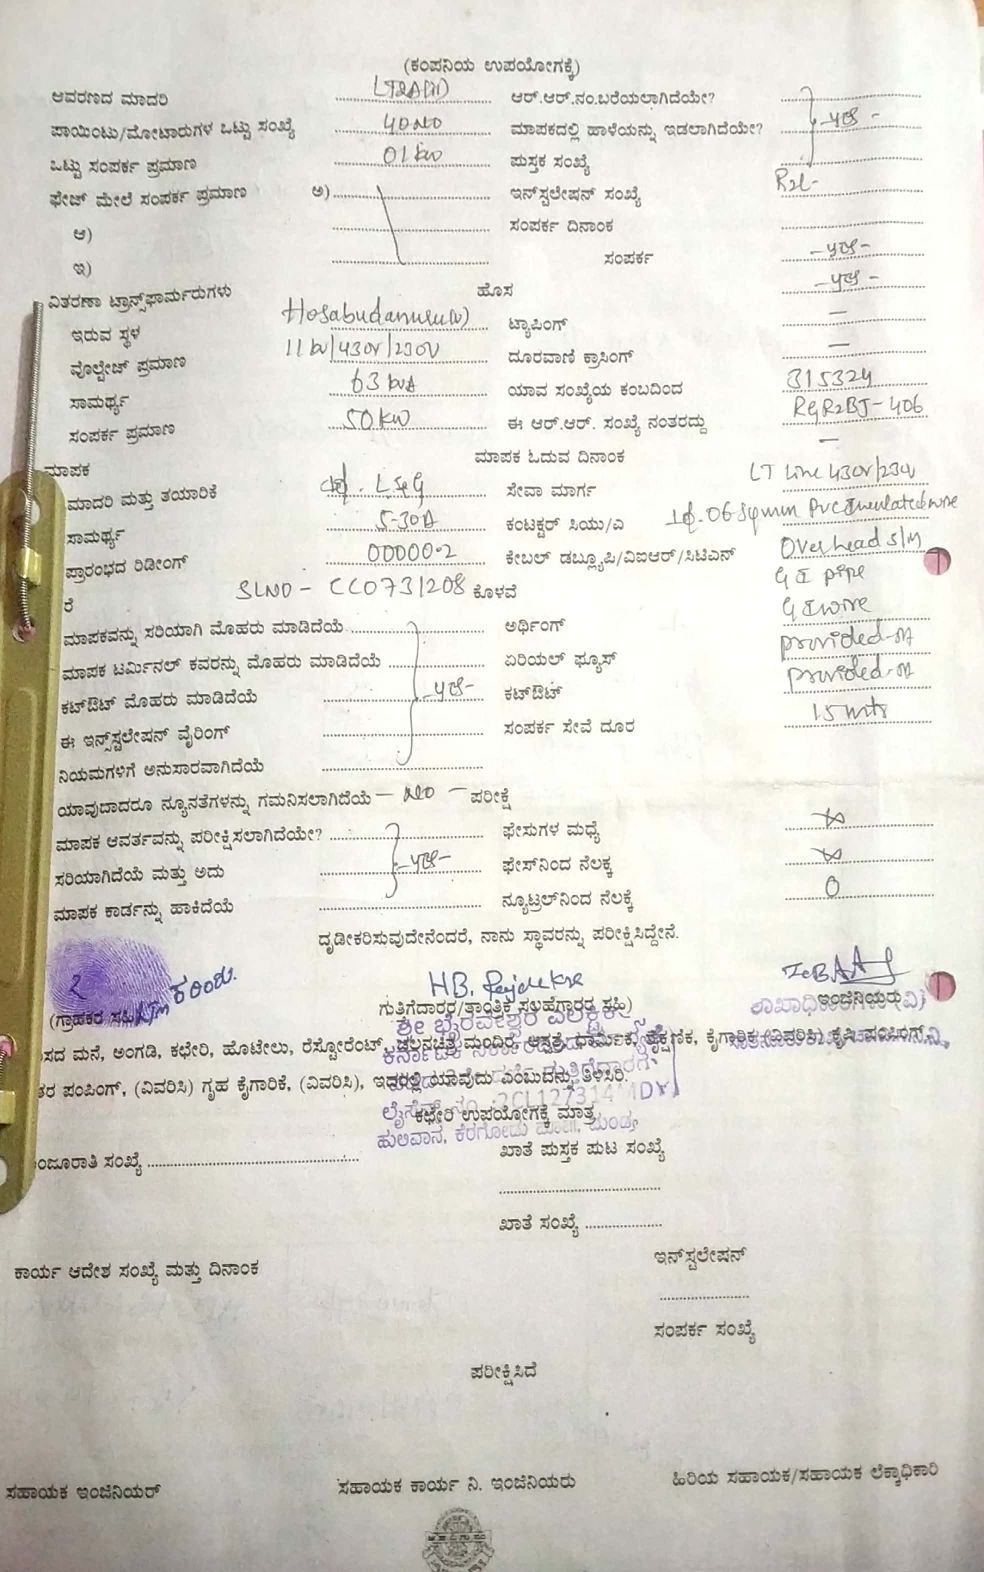 (ಕಂಪನಿಯ ಉಪಯೋಗಕ್ಕೆ)
ಆವರಣದ ಮಾದರಿ LT2A(ii) ಆರ್.ಆರ್.ನಂ.ಬರೆಯಲಾಗಿದೆಯೇ?
ಪಾಯಿಂಟು/ಮೋಟಾರುಗಳ ಒಟ್ಟು ಸಂಖ್ಯೆ 40NO ಮಾಪಕದಲ್ಲಿ ಹಾಳೆಯನ್ನು ಇಡಲಾಗಿದೆಯೇ? -yes-
ಒಟ್ಟು ಸಂಪರ್ಕ ಪ್ರಮಾಣ 01kw ಪುಸ್ತಕ ಸಂಖ್ಯೆ
ಫೇಜ್ ಮೇಲೆ ಸಂಪರ್ಕ ಪ್ರಮಾಣ ಅ) ಇನ್‌ಸ್ಟಲೇಷನ್ ಸಂಖ್ಯೆ
ಆ) ಸಂಪರ್ಕ ದಿನಾಂಕ
ಇ) ಸಂಪರ್ಕ -yes-
ವಿತರಣಾ ಟ್ರಾನ್ಸ್‌ಫಾರ್ಮರುಗಳು ಹೊಸ -yes-
ಇರುವ ಸ್ಥಳ Hosabudanuru(v) ಟ್ಯಾಪಿಂಗ್ —
ವೊಲ್ಟೇಜ್ ಪ್ರಮಾಣ 11kv/430v/230v ದೂರವಾಣಿ ಕ್ರಾಸಿಂಗ್ —
ಸಾಮರ್ಥ್ಯ 63 kvA ಯಾವ ಸಂಖ್ಯೆಯ ಕಂಬದಿಂದ 315324
ಸಂಪರ್ಕ ಪ್ರಮಾಣ 50kw ಈ ಆರ್.ಆರ್. ಸಂಖ್ಯೆ ನಂತರದ್ದು RGR2BJ-406
ಮಾಪಕ ಮಾಪಕ ಓದುವ ದಿನಾಂಕ —
ಮಾದರಿ ಮತ್ತು ತಯಾರಿಕೆ L&G ಸೇವಾ ಮಾರ್ಗ LT Line 430v/230v
ಸಾಮರ್ಥ್ಯ 5-30A ಕಂಟಕ್ಟರ್ ಸಿಯು/ಎ 06 Sqmm Pvc Insulated wire
ಪ್ರಾರಂಭದ ರಿಡೀಂಗ್ 00000.2 ಕೇಬಲ್ ಡಬ್ಲ್ಯೂಪಿ/ವಿಐಆರ್/ಸಿಟಿಎನ್ Overhead S/M
ರೆ SLNO - CC0731208 ಕೊಳವೆ G I pipe
ಮಾಪಕವನ್ನು ಸರಿಯಾಗಿ ಮೊಹರು ಮಾಡಿದೆಯೆ ಅರ್ಥಿಂಗ್ G I wire
ಮಾಪಕ ಟರ್ಮಿನಲ್ ಕವರನ್ನು ಮೊಹರು ಮಾಡಿದೆಯೆ ಏರಿಯಲ್ ಫ್ಯೂಸ್ provided
ಕಟ್‌ಔಟ್ ಮೊಹರು ಮಾಡಿದೆಯೆ -yes- ಕಟ್‌ಔಟ್ provided
ಈ ಇನ್ಸ್‌ಸ್ಟಲೇಷನ್ ವೈರಿಂಗ್ ಸಂಪರ್ಕ ಸೇವೆ ದೂರ 15 mtr
ನಿಯಮಗಳಿಗೆ ಅನುಸಾರವಾಗಿದೆಯೆ
ಯಾವುದಾದರೂ ನ್ಯೂನತೆಗಳನ್ನು ಗಮನಿಸಲಾಗಿದೆಯೆ — NO — ಪರೀಕ್ಷೆ
ಮಾಪಕ ಆವರ್ತವನ್ನು ಪರೀಕ್ಷಿಸಲಾಗಿದೆಯೇ? ಫೇಸುಗಳ ಮಧ್ಯೆ ∞
ಸರಿಯಾಗಿದೆಯೆ ಮತ್ತು ಅದು -yes- ಫೇಸ್‌ನಿಂದ ನೆಲಕ್ಕೆ ∞
ಮಾಪಕ ಕಾರ್ಡನ್ನು ಹಾಕಿದೆಯೆ ನ್ಯೂಟ್ರಲ್‌ನಿಂದ ನೆಲಕ್ಕೆ 0
ದೃಢೀಕರಿಸುವುದೇನೆಂದರೆ, ನಾನು ಸ್ಥಾವರನ್ನು ಪರೀಕ್ಷಿಸಿದ್ದೇನೆ.
(ಗ್ರಾಹಕರ ಸಹಿ) ಗುತ್ತಿಗೆದಾರರ/ತಾಂತ್ರಿಕ ಸಲಹೆಗಾರರ ಸಹಿ) ಶಾಖಾಧಿಕಾರಿ ಇಂಜಿನಿಯರು(ವಿ)
ಶ್ರೀ ಭೈರವೇಶ್ವರ ಎಲೆಕ್ಟ್ರಿಕಲ್ಸ್
ಸದ ಮನೆ, ಅಂಗಡಿ, ಕಛೇರಿ, ಹೊಟೇಲು, ರೆಸ್ಟೋರೆಂಟ್, ಚಲನಚಿತ್ರ ಮಂದಿರ, ಆಸ್ಪತ್ರೆ, ಧಾರ್ಮಿಕ, ಶೈಕ್ಷಣಿಕ, ಕೈಗಾರಿಕ (ವಿವರಿಸಿ) ಕೃಷಿ ಪಂಪಿಂಗ್,
ತರ ಪಂಪಿಂಗ್, (ವಿವರಿಸಿ) ಗೃಹ ಕೈಗಾರಿಕೆ, (ವಿವರಿಸಿ), ಇದರಲ್ಲಿ ಯಾವುದು ಎಂಬುದನ್ನು ತಿಳಿಸಿರಿ.
ಕಛೇರಿ ಉಪಯೋಗಕ್ಕೆ ಮಾತ್ರ
ಹುಲಿವಾನ, ಕೆರಗೋಡು
ಂಜೂರಾತಿ ಸಂಖ್ಯೆ ಖಾತೆ ಪುಸ್ತಕ ಪುಟ ಸಂಖ್ಯೆ
ಖಾತೆ ಸಂಖ್ಯೆ
ಕಾರ್ಯ ಆದೇಶ ಸಂಖ್ಯೆ ಮತ್ತು ದಿನಾಂಕ ಇನ್‌ಸ್ಟಲೇಷನ್
ಸಂಪರ್ಕ ಸಂಖ್ಯೆ
ಪರೀಕ್ಷಿಸಿದೆ
ಸಹಾಯಕ ಇಂಜಿನಿಯರ್ ಸಹಾಯಕ ಕಾರ್ಯ ನಿ. ಇಂಜಿನಿಯರು ಹಿರಿಯ ಸಹಾಯಕ/ಸಹಾಯಕ ಲೆಕ್ಕಾಧಿಕಾರಿ